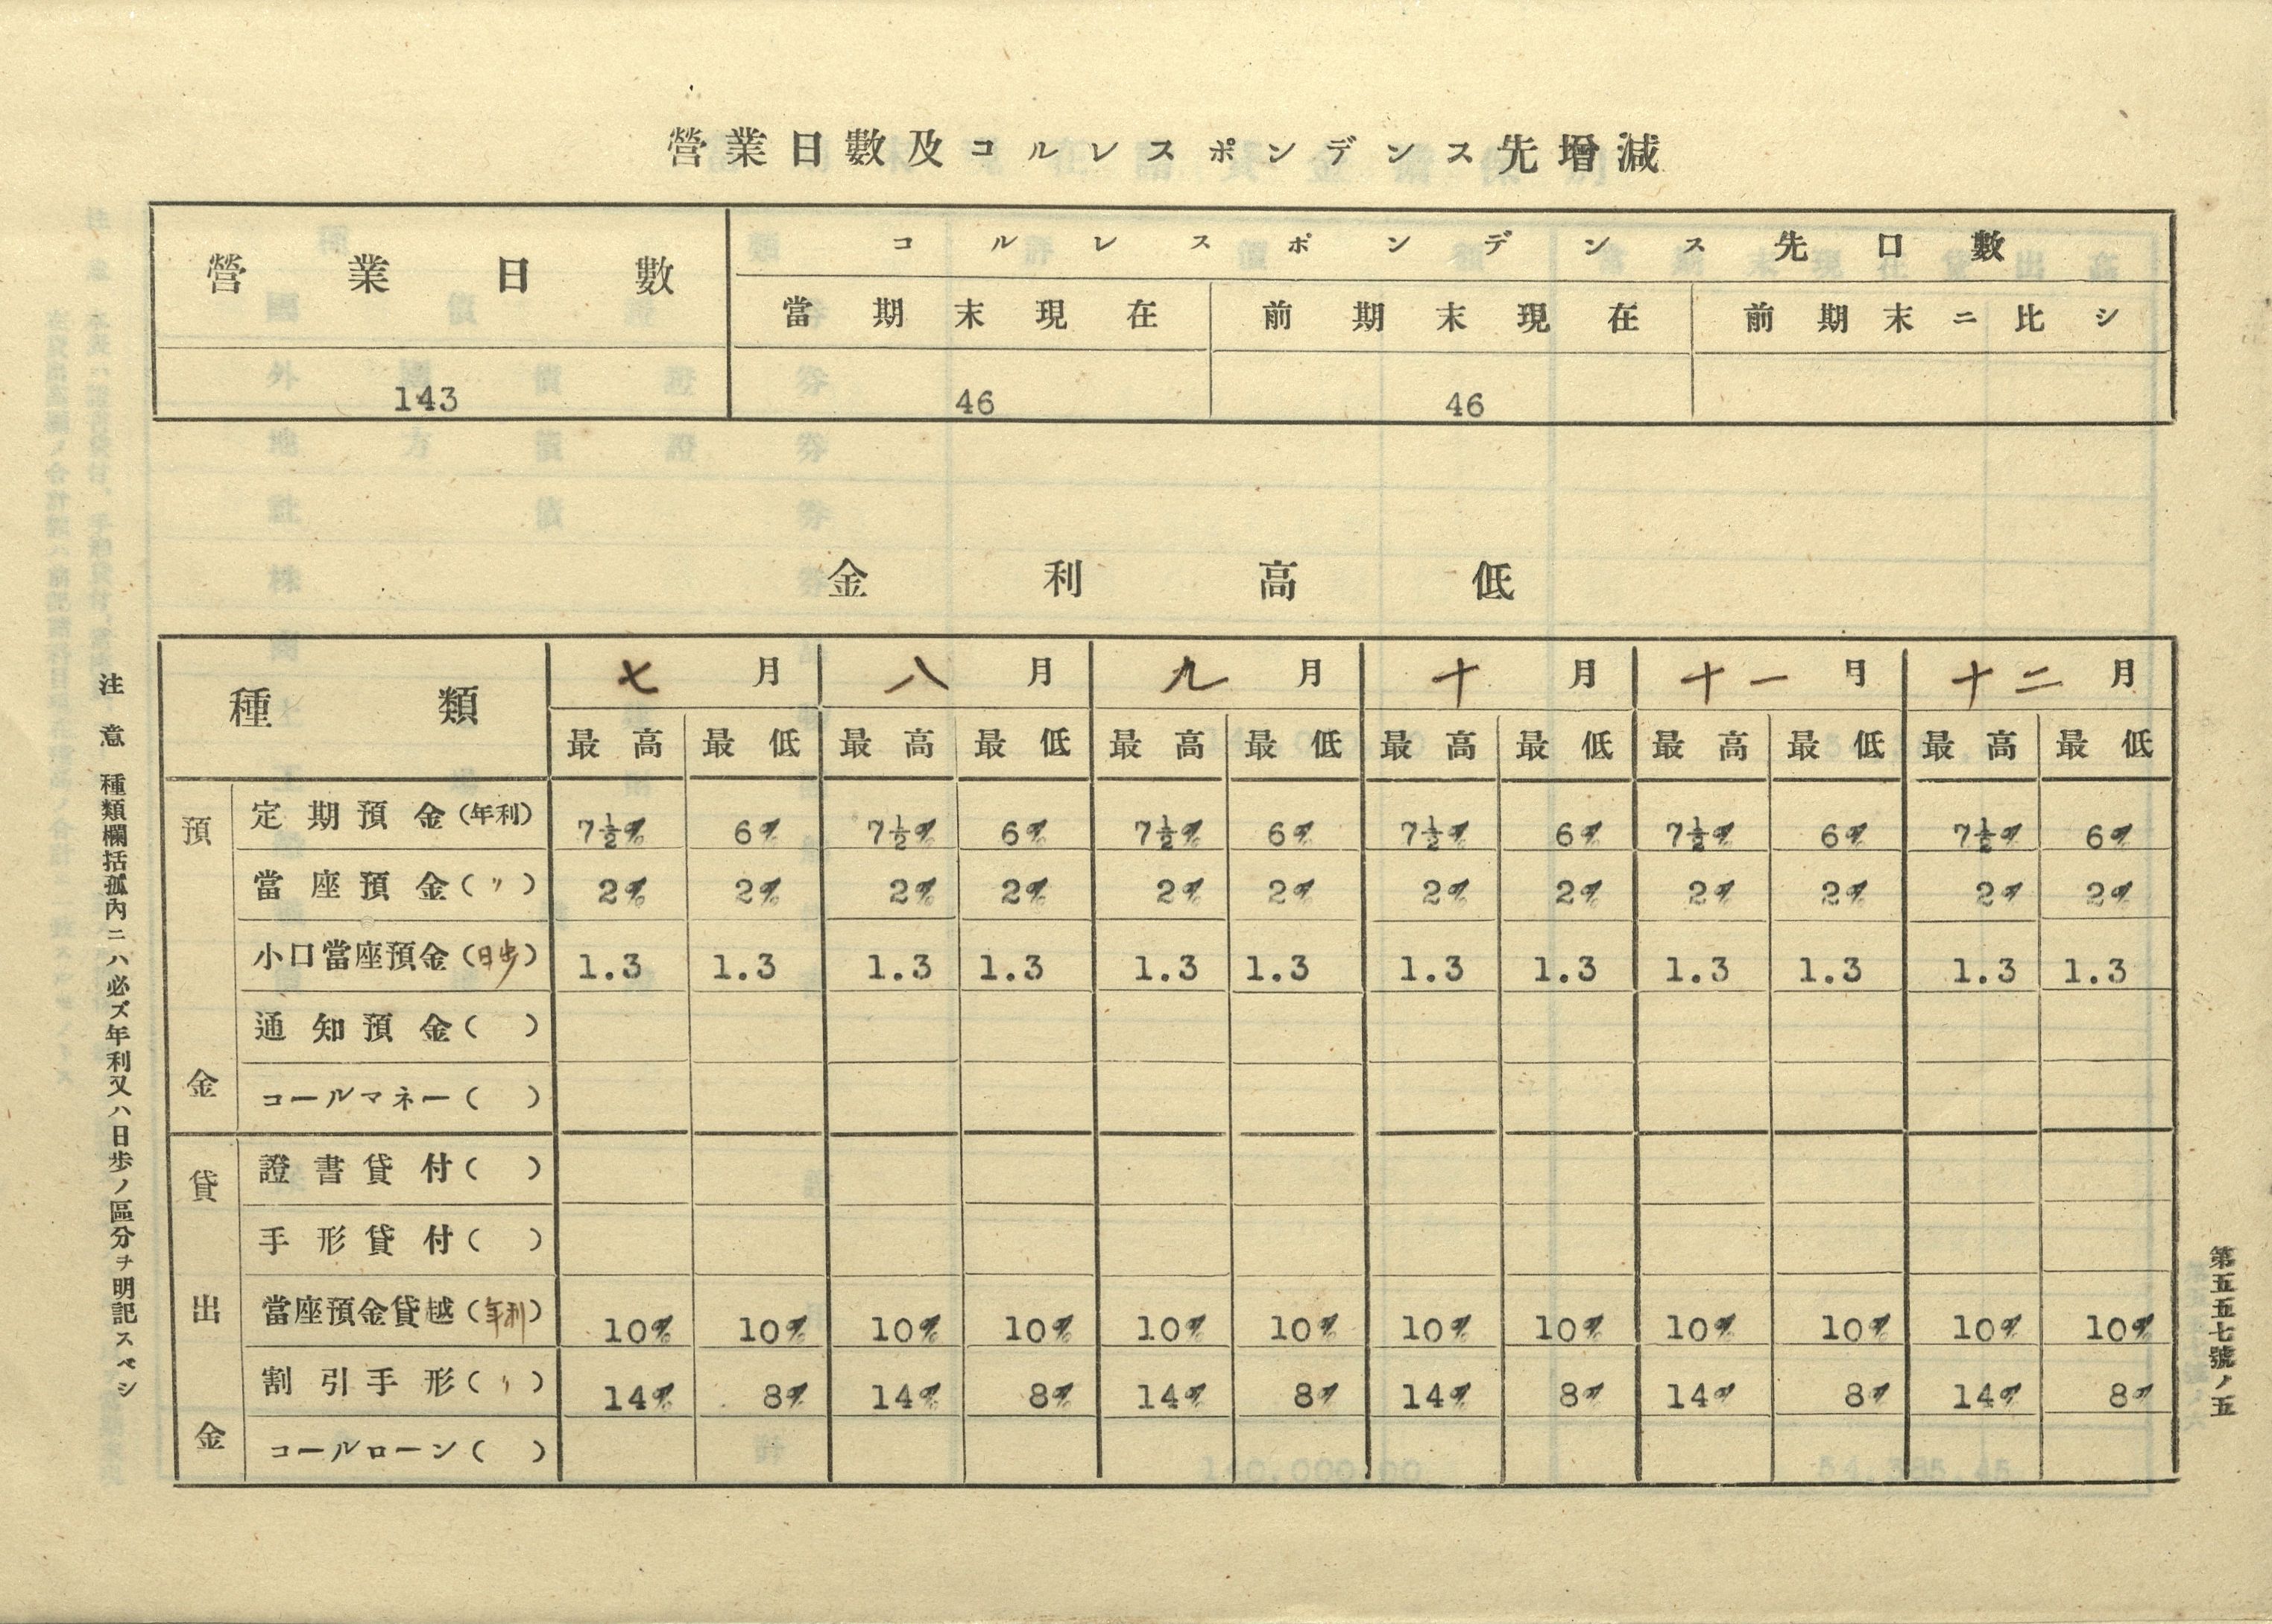 營業日數及コルレスポンデンス先增減
營業日數 コルレスポンデンス先口數
當期末現在 前期末現在 前期末ニ比シ
143 46 46
金利高低
種類 七月 八月 九月 十月 十一月 十二月
最高 最低 最高 最低 最高 最低 最高 最低 最高 最低 最高 最低
預金
定期預金(年利) 7½% 6% 7½% 6% 7½% 6% 7½% 6% 7½% 6% 7½% 6%
當座預金(〃) 2% 2% 2% 2% 2% 2% 2% 2% 2% 2% 2% 2%
小口當座預金(日歩) 1.3 1.3 1.3 1.3 1.3 1.3 1.3 1.3 1.3 1.3 1.3 1.3
通知預金( )
コールマネー( )
貸出金
證書貸付( )
手形貸付( )
當座預金貸越(年利) 10% 10% 10% 10% 10% 10% 10% 10% 10% 10% 10% 10%
割引手形(〃) 14% 8% 14% 8% 14% 8% 14% 8% 14% 8% 14% 8%
コールローン( )
注意 種類欄括孤內ニハ必ズ年利又ハ日歩ノ區分ヲ明記スベシ
第五五七號ノ五